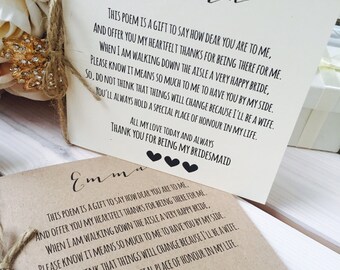 THIS POEM IS A GIFT TO SAY HOW DEAR YOU ARE TO ME,
AND OFFER YOU MY HEARTFELT THANKS FOR BEING THERE FOR ME.
WHEN I AM WALKING DOWN THE AISLE A VERY HAPPY BRIDE,
PLEASE KNOW IT MEANS SO MUCH TO ME TO HAVE YOU BY MY SIDE.
SO, DO NOT THINK THAT THINGS WILL CHANGE BECAUSE I'LL BE A WIFE.
YOU'LL ALWAYS HOLD A SPECIAL PLACE OF HONOUR IN MY LIFE.
ALL MY LOVE TODAY AND ALWAYS
THANK YOU FOR BEING MY BRIDESMAID
Emma
THIS POEM IS A GIFT TO SAY HOW DEAR YOU ARE TO ME,
AND OFFER YOU MY HEARTFELT THANKS FOR BEING THERE FOR ME.
WHEN I AM WALKING DOWN THE AISLE A VERY HAPPY BRIDE,
PLEASE KNOW IT MEANS SO MUCH TO ME TO HAVE YOU BY MY SIDE.
THINK THAT THINGS WILL CHANGE BECAUSE I'LL BE A WIFE.
PLACE OF HONOUR IN MY LIFE.